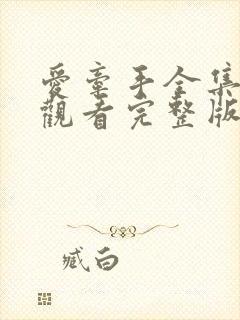 愛牽手全集
觀看完整版
臧白